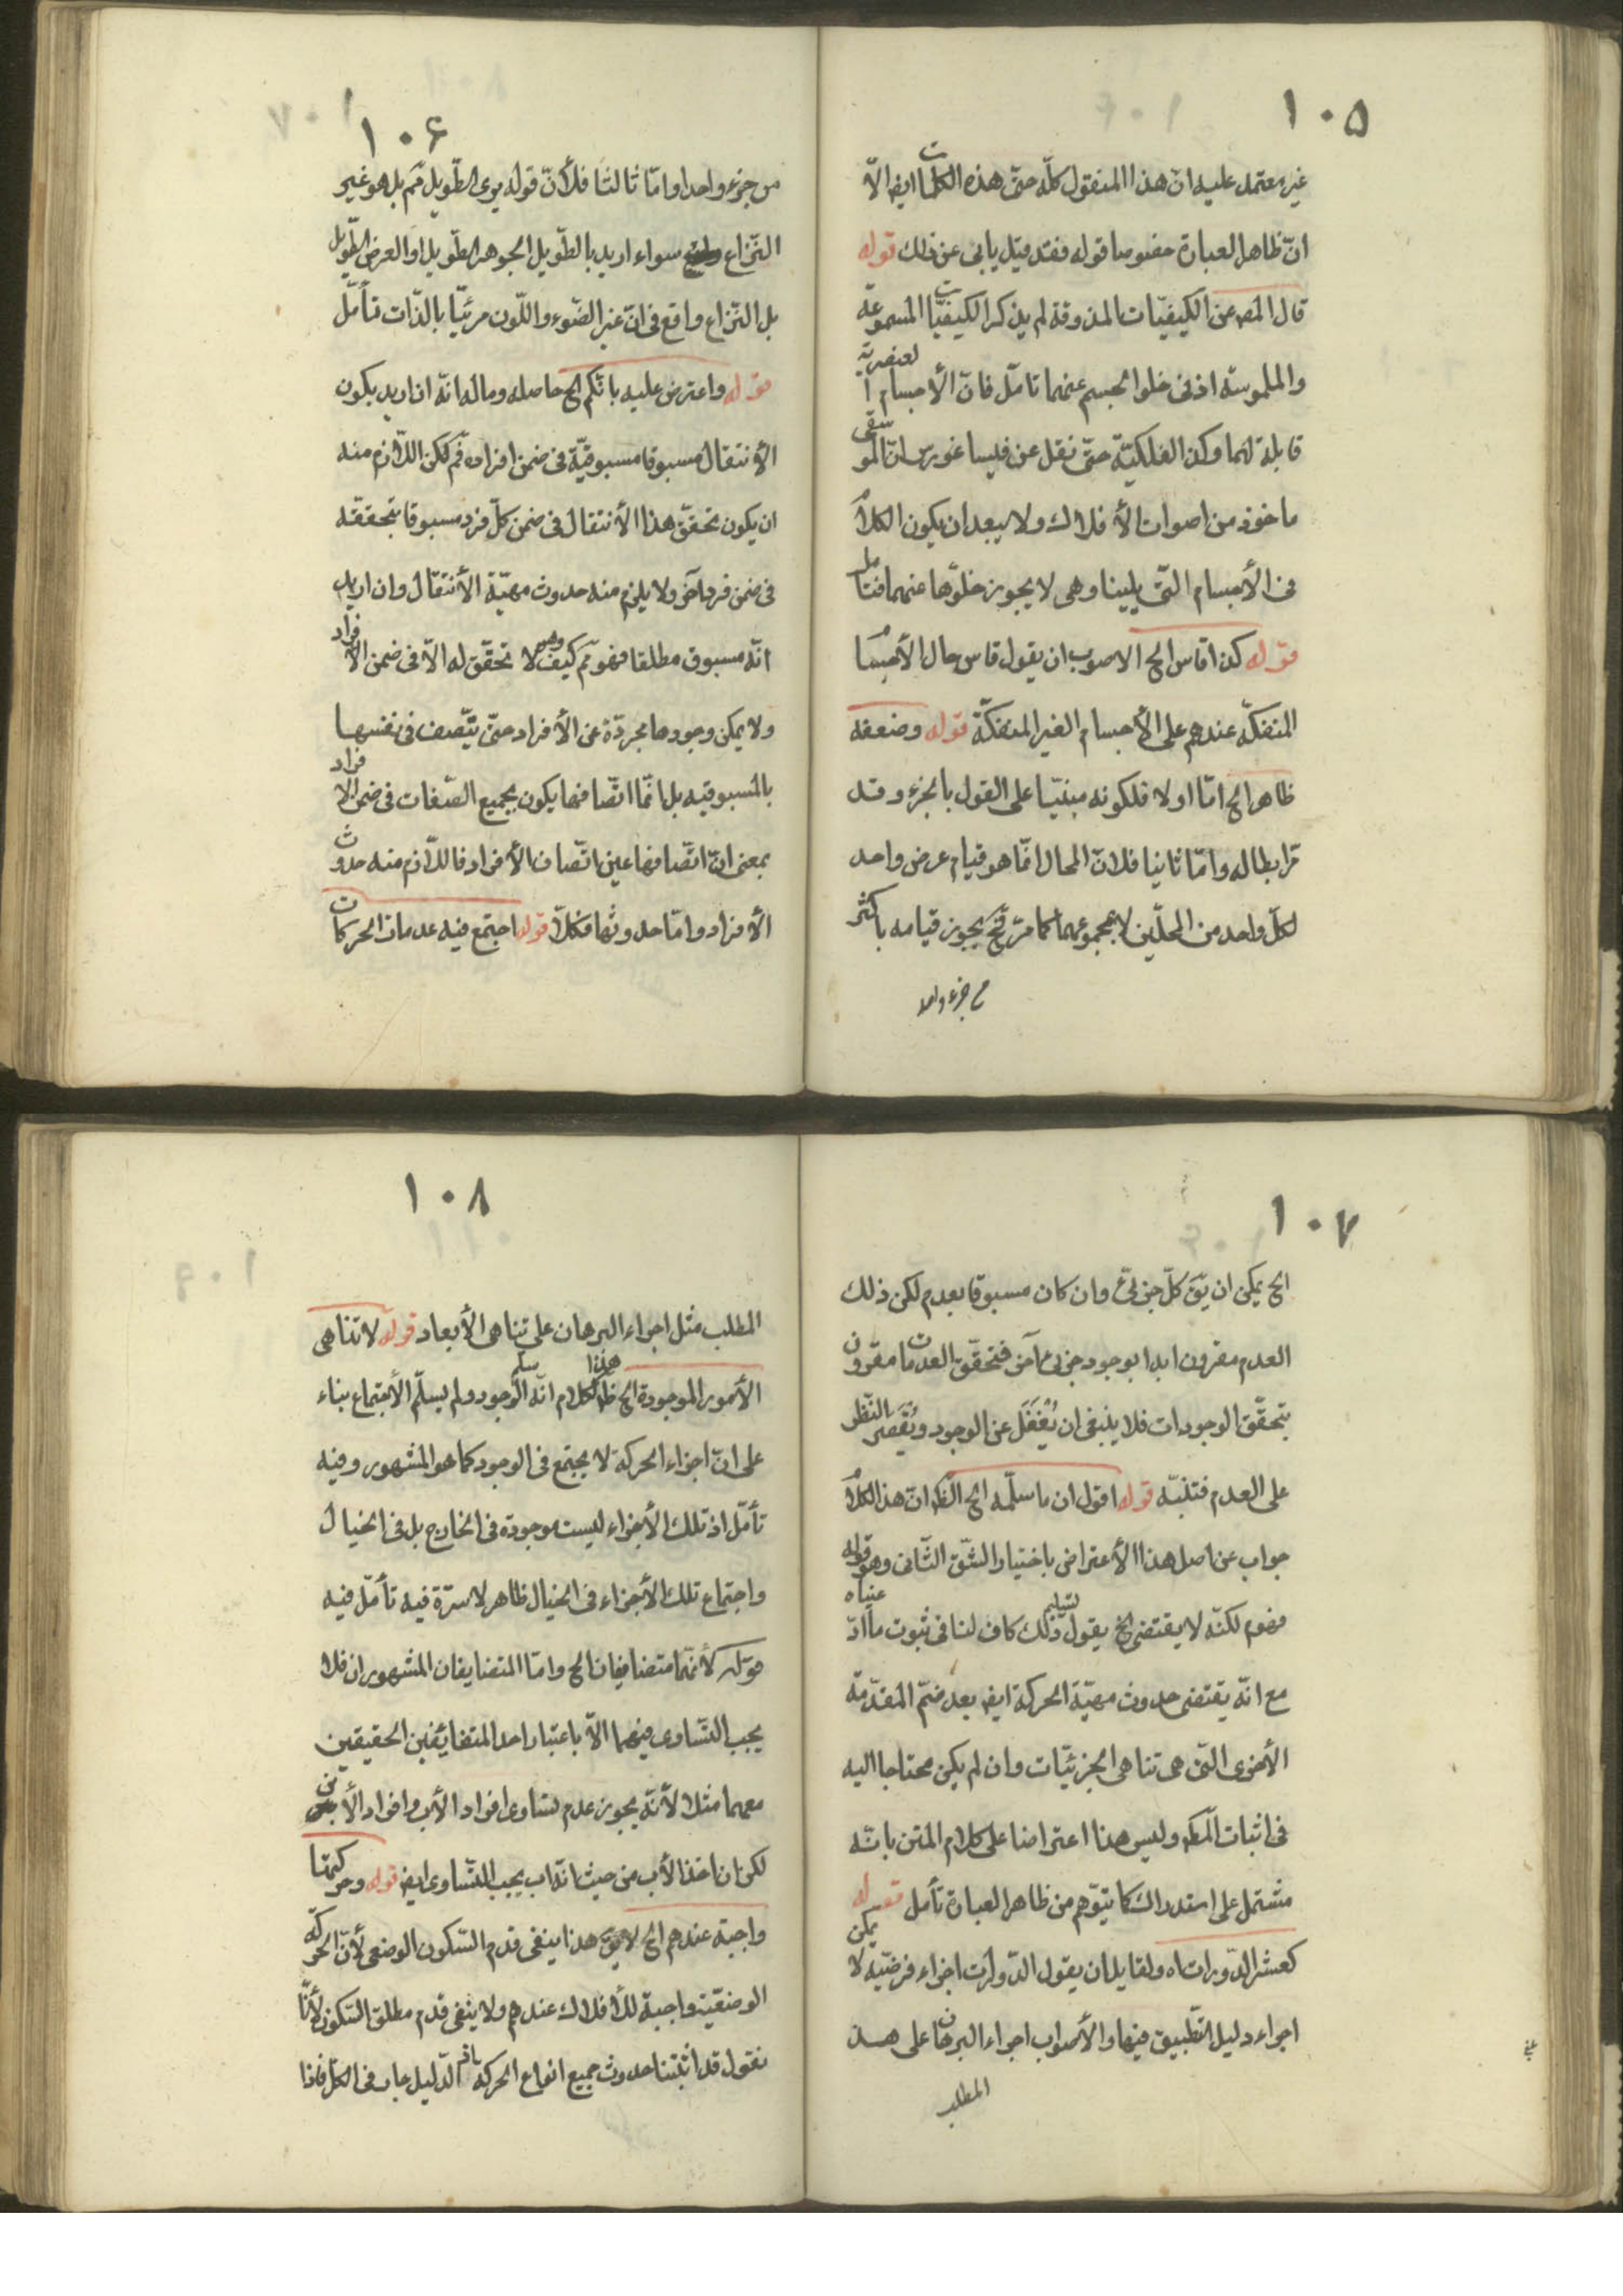 ١٠٥
غير معتمد عليه ان هذا المنقول كلّه حتّى هذه الكلمات ايض الاّ
انّ ظاهر العبارة خصوصا قوله فقد قيل يابى عن ذلك قوله
قال المص عن الكيفيّات المذوقة لم يذكر الكيفيّات المسموعة
والملموسة اذ فى خلوا لجسم عنهما تامّل فانّ الأجسام العنصرية
قابلة لهما وكذا الفلكيّة حتّى نقل عن فيساغورس انّ الموسيقى
ماخوذ من اصوات الأفلاك ولا يبعد ان يكون الكلام
فى الأجسام الّتى يلينا وهى لا يجوز خلوّها عنهما فتامل
قوله كذا قاس الح الاصوب ان يقول قاس حال الأجسام
المنفكّة عندهم على الأجسام الغير المنفكّة قوله وضعفه
ظاهر الح امّا اولا فلكونه مبنيّا على القول بالجزء وقد
مرّ ابطاله وامّا ثانيا فلانّ المحال انّما هو قيام عرض واحد
لكلّ واحد من المحلّين لا بمجموعهما كما مرّ فح يجوز قيامه باكثر
من جزء واحد
١٠۶
من جزء واحد وامّا ثالثا فلأنّ قوله يرى الطّويل مم بل هو غير
النّزاع سواء اريد بالطّويل الجوهر الطّويل او العرض الطّويل
بل النّزاع واقع فى انّ غير الضّوء واللّون مرئيّا بالذّات تأمّل
قوله واعترض عليه بانّكم الح حاصله وماله انّه ان اريد بكون
الأنتقال مسبوقا مسبوقيّة فى ضمن افراده فم لكن اللاّزم منه
ان يكون تحقّق هذا الأنتقال فى ضمن كلّ فرد مسبوقا بتحققه
فى ضمن فرد آخر ولا يلزم منه حدوث مهيّة الأنتقال وان اريد
انّه مسبوق مطلقا فهو مم كيف وهى لا تحقّق له الاّ فى ضمن الأفراد
ولا يمكن وجودها مجردّة عن الأفراد حتّى يتّصف فى نفسها
بالمسبوقيه بل انّما اتّصافها يكون بجميع الصّفات فى ضمن الافراد
بمعنى انّ اتّصافها عين اتّصاف الأفراد فاللاّزم منه حدوث
الأفراد وامّا حدوثها فكلاّ قوله اجتمع فيه عدمات الحركات
١٠٧
الح يمكن ان يق كلّ جزئىّ وان كان مسبوقا بعدم لكن ذلك
العدم مقرون ابدا بوجود جزئى آخر فتحقّق العدمات مقرون
بتحقّق الوجودات فلا ينبغى ان يُغفَل عن الوجود ويُقصر النّظر
على العدم فتنبّه قوله اقول ان ما سلّمه الح الظ انّ هذا الكلام
جواب عن اصل هذا الأعتراض باختيار الشّق الثّانى وهو قوله
فهو مم لكنّه لا يقتضى الخ يقول تسليم ذلك كاف لنا فى ثبوت ما ادّعيناه
مع انّه يقتضى حدوث مهيّة الحركة ايض بعد ضمّ المقدّمة
الأخرى الّتى هى تناهى الجزئيّات وان لم يكن محتاجا اليه
فى اثبات المط وليس هذا اعتراضا على كلام المتن بانّه
مشتمل على استدراك كما يتوّهم من ظاهر العبارة تأمل قوله
كعشر الدّورات اه ولقايل ان يقول الدّورات اجزاء فرضيّه لا يمكن
اجراء دليل التّطبيق فيها والأصواب اجراء البرهان على هذ
المطلب
١٠٨
المطلب مثل اجراء البرهان على تناهى الأبعاد قوله لا تناهى
الأمور الموجودة الح ظ هذا الكلام انّه سلّم الوجود ولم يسلّم الأجتماع بناء
على انّ اجزاء الحركة لا يجتمع فى الوجود كما هو المشهور وفيه
تأمّل اذ تلك الأجزاء ليست موجودة فى الخارج بل فى الخيال
واجتماع تلك الأجزاء فى الخيال ظاهر لا سرّة فيه تأمّل فيه
قوله لأنّهما متضايفان الح وامّا المتضايفان المشهوران فلا
يجب التّساوى فيهما الاّ باعتبار احد المتضائفين الحقيقين
معهما مثلا لأنّه يجوز عدم تساوى افراد الأب وافراد الأبن
لكن ان اخذ الأب من حيث انّه اب يجب التّساوى ايض قوله وحركتها
واجبة عندهم الح لا يق هذا ينفى قدم السّكون الوضعى لأنّ الحركة
الوضعيّة واجبة للأفلاك عندهم ولا ينفى قدم مطلق السّكون لأنّا
نقول قد اثبتنا حدوث جميع انواع الحركة الدّليل جار فى الكلّ فاذا